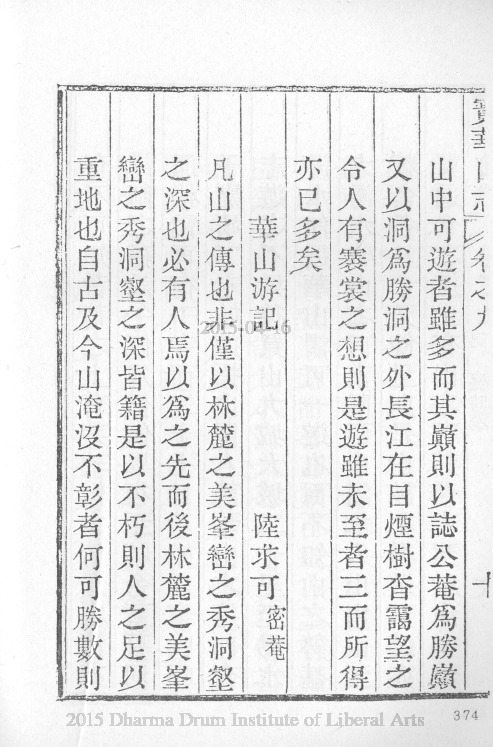 寶華山志 卷之九 十
山中可遊者雖多而其巔則以誌公菴爲勝巔
又以洞爲勝洞之外長江在目煙樹杳靄望之
令人有褰裳之想則是遊雖未至者三而所得
亦已多矣
華山游記 陸求可密菴
凡山之傳也非僅以林麓之美峯巒之秀洞壑
之深也必有人焉以爲之先而後林麓之美峯
巒之秀洞壑之深皆籍是以不朽則人之足以
重地也自古及今山淹沒不彰者何可勝數則
2015-04-16
374
2015 Dharma Drum Institute of Liberal Arts